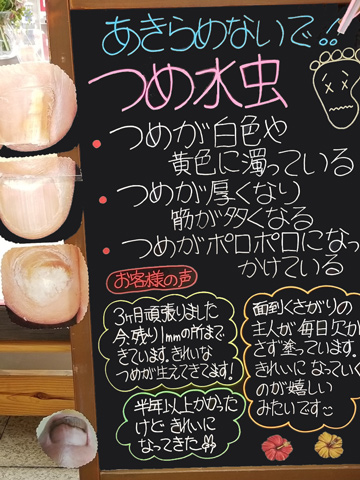 あきらめないで!!
つめ水虫
• つめが白色や
黄色に濁っている
• つめが厚くなり
筋が多くなる
• つめがボロボロになっ
かけている
お客様の声
3ヶ月頑張りました
今、残り1mmの所まで
きています。きれいな
つめが生えてきてます!
面到くさがりの
主人が毎日欠か
さず塗っています。
きれいになっていく
のが嬉しい
みたいです
半年以上かかった
けど きれいに
なってきた